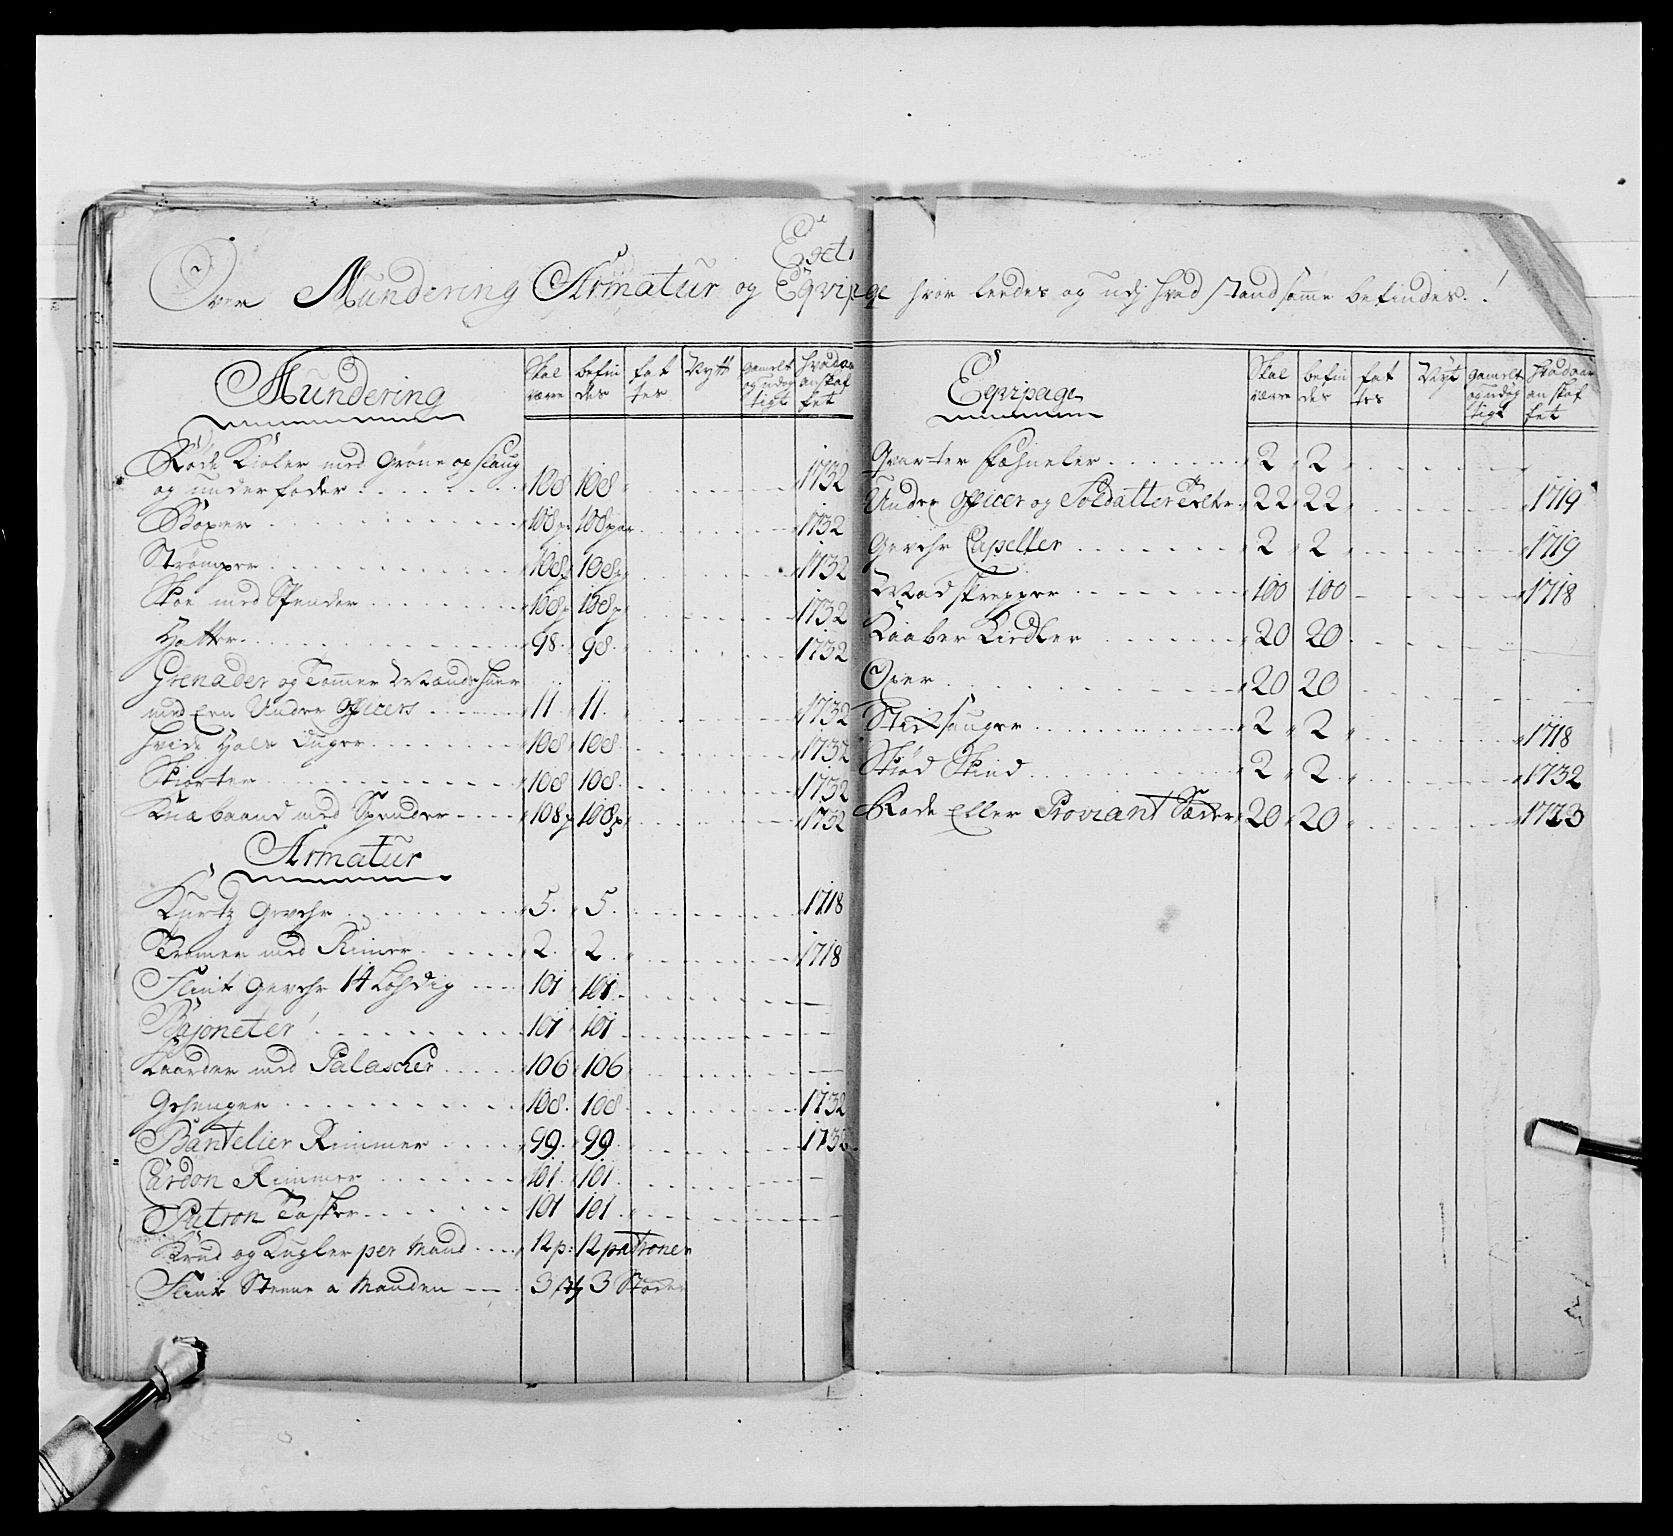 Extr
Over Mundering Armatur og Eqvipage hvorleedes og udj hvad stand same befindes.
Mundering Skal være befindes fattes Nytt gamelt og udøgtigt hvad aar anskaffet
Røde Kioler med Grøne opslaug
og underfoder 108 108 1732
Boxer 108 p 108 par 1732
Strømper 108 p 108 p 1732
Skoe med Spender 108 p 108 p 1732
Hatter 98 98 1732
Grenader og Tømer Mands huer
med een Under Officers 11 11 1732
hvide Hals duger 108 108 1732
Skiorter 108 108 1732
Knæbaand med Spender 108 p 108 p 1732
Armatur
Kurtz Gevehr 5 5 1718
Tromer med Rimer 2 2 1718
Flint Gevehr 14 Lohdig 101 101
Bajoneter 101 101
Kaarder med Palascher 106 106
Gehenger 108 108 1732
Bantelier Remmer 99 99 1732
Cardon Remmer 101 101
Patron Tasker 101 101
Krud og Kugler per Mand 12 p: 12 patroner
Flint Steene a Manden 3 st 3 Støcker
Eqvipage Skal være befindes fattes Nyt gamelt og udøgtigt hvad aar anskaffet
Qvarteer fahneler 2 2
Under Officer og Soldatter Telte 22 22 1719
Gevehr Capeller 2 2 1719
Madskrepper 100 100 1718
Kaaber Kiedler 20 20
Oxer 20 20
Stichsauger 2 2 1718
Skiød Skind 2 2 1732
Rode Eller Proviant Sæcker 20 20 1723